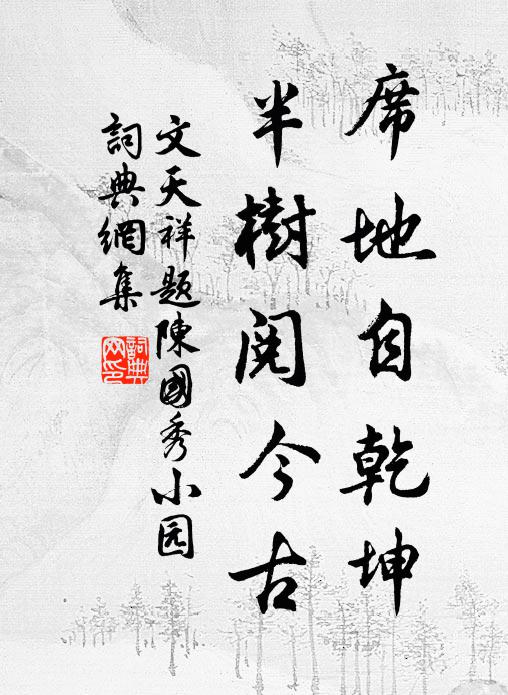 席地自乾坤
半樹閱今古
文天祥题陳國秀小园
詞典網集
詞典網印